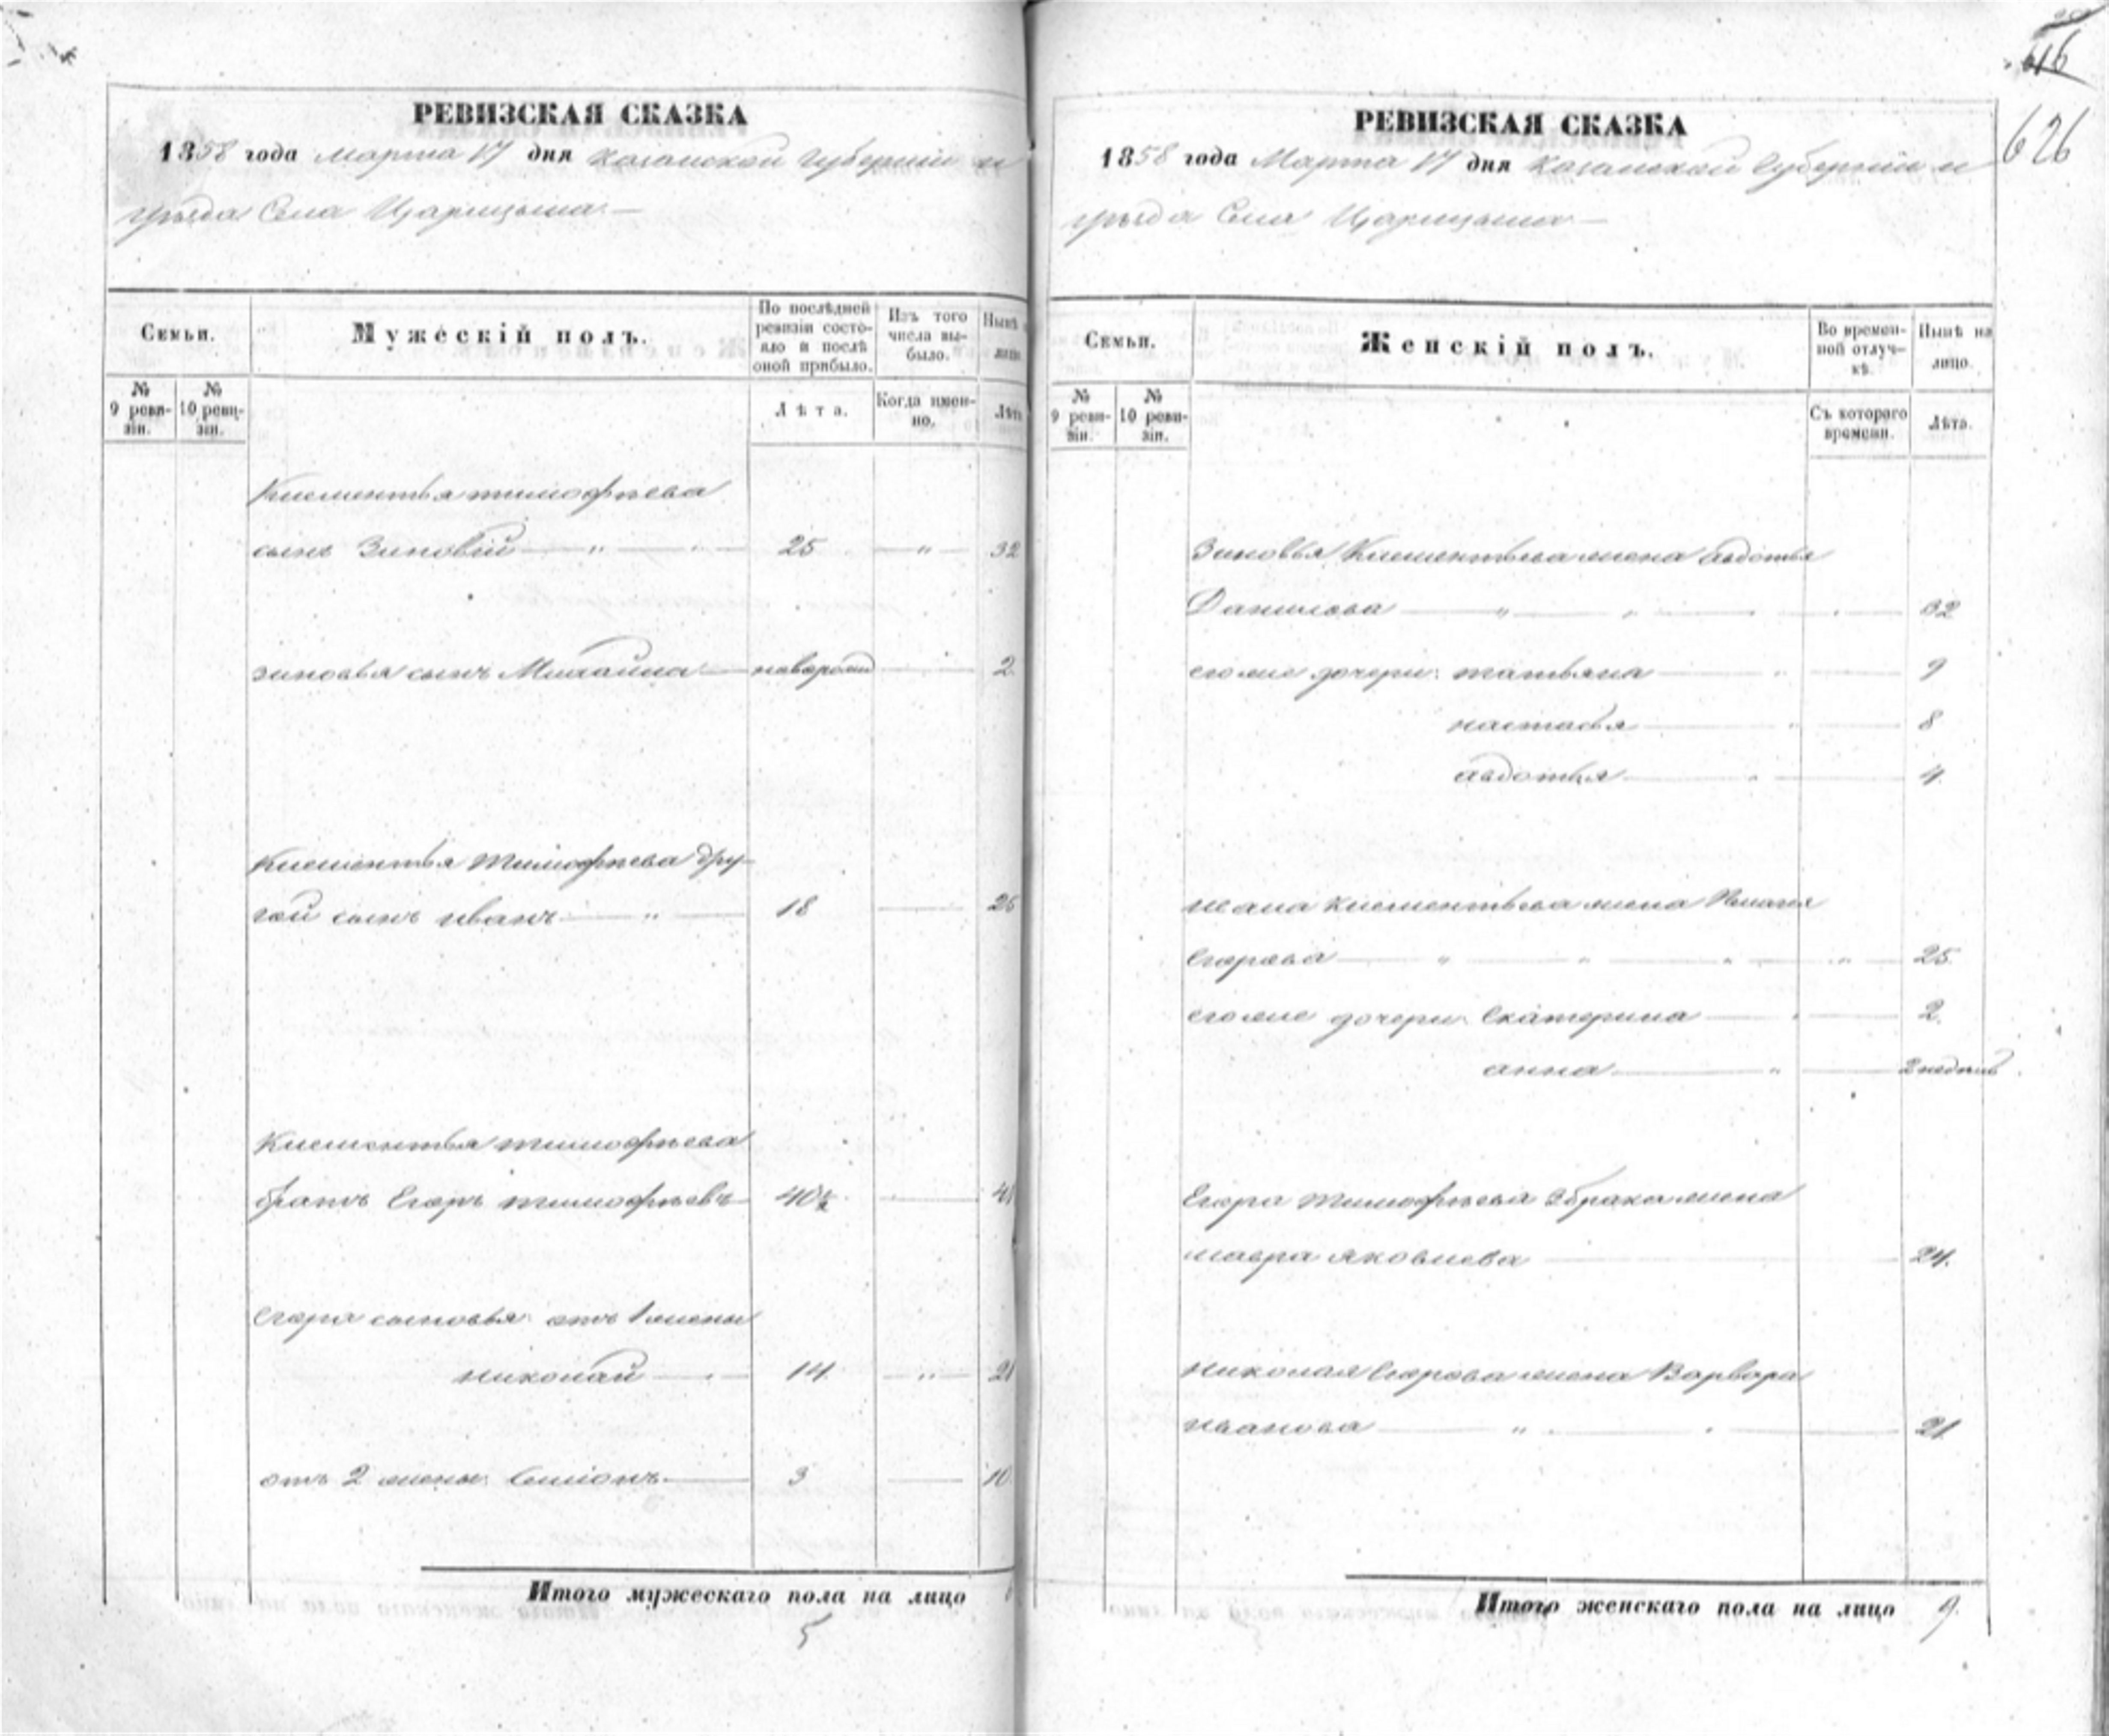 РЕВИЗСКАЯ СКАЗКА
1858 года Марта 17 дня Казанской Губернiи и
уѣзда Села Царицына —
Семьи.
Мужескiй полъ.
По послѣдней ревизiи состо-
яло и послѣ оной прибыло.
Изъ того числа вы-
было.
Нынѣ
лицо
№ 9 реви-
зiи.
№ 10 реви-
зiи.
Лѣта.
Когда имен-
но.
Лѣта
Клементья тимофѣева
сынъ Зиновiй — " — 25 — " — 32
зиновья сынъ Михайла — 2
Клементья Тимофѣева дру-
гой сынъ иванъ — " — 18 — 25
Клементья тимофѣева
братъ Егоръ тимофѣевъ — 40½ — 41
Егора сыновья: отъ 1 жены
николай — 14 — " — 21
отъ 2 жены: Семiонъ — 3 — 10
Итого мужескаго пола на лицо
5
616
626
РЕВИЗСКАЯ СКАЗКА
1858 года Марта 17 дня Казанской Губернiи и
уѣзда Села Царицына —
Семьи.
Женскiй полъ.
Во времен-
ной отлуч-
кѣ.
Нынѣ на
лицо.
№ 9 реви-
зiи.
№ 10 реви-
зiи.
Съ котораго
времени.
Лѣта.
Зиновья Клементьева жена авдотья
Данилова — " — 32
егоже дочери: татьяна — 9
настасья — 8
авдотья — 4
ивана клементьева жена
Егорова — " — 25
егоже дочери: Екатерина — 2
анна — 2 недѣль
Егора Тимофѣева 3 брака жена
мавра яковлева — 24
николая Егорова жена Варвара
иванова — " — 21
Итого женскаго пола на лицо 9.